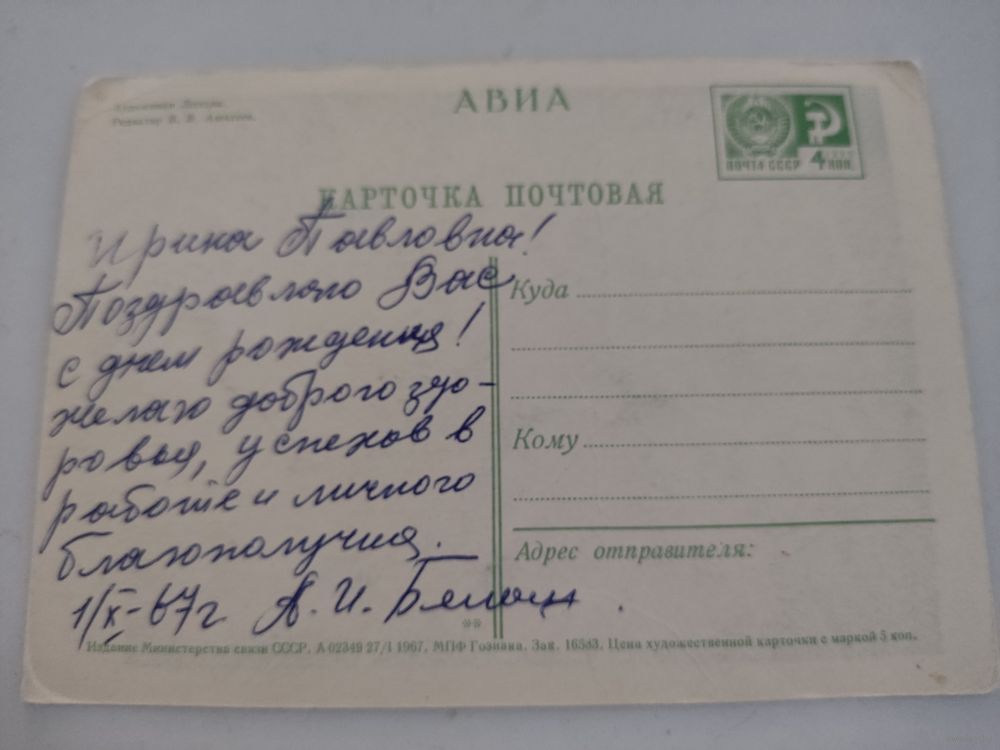 Редактор В. В.
АВИА
ПОЧТА СССР 4 КОП.
КАРТОЧКА ПОЧТОВАЯ
Ирина Павловна!
Поздравляю Вас
с днем рождения!
желаю доброго здо-
ровья, успехов в
работе и личного
благополучия.
1/X-67г. А. И.
Куда
Кому
Адрес отправителя:
Издание Министерства связи СССР. А 02349 27/I 1967. МПФ Гознака. Зак. 16583. Цена художественной карточки с маркой 5 коп.